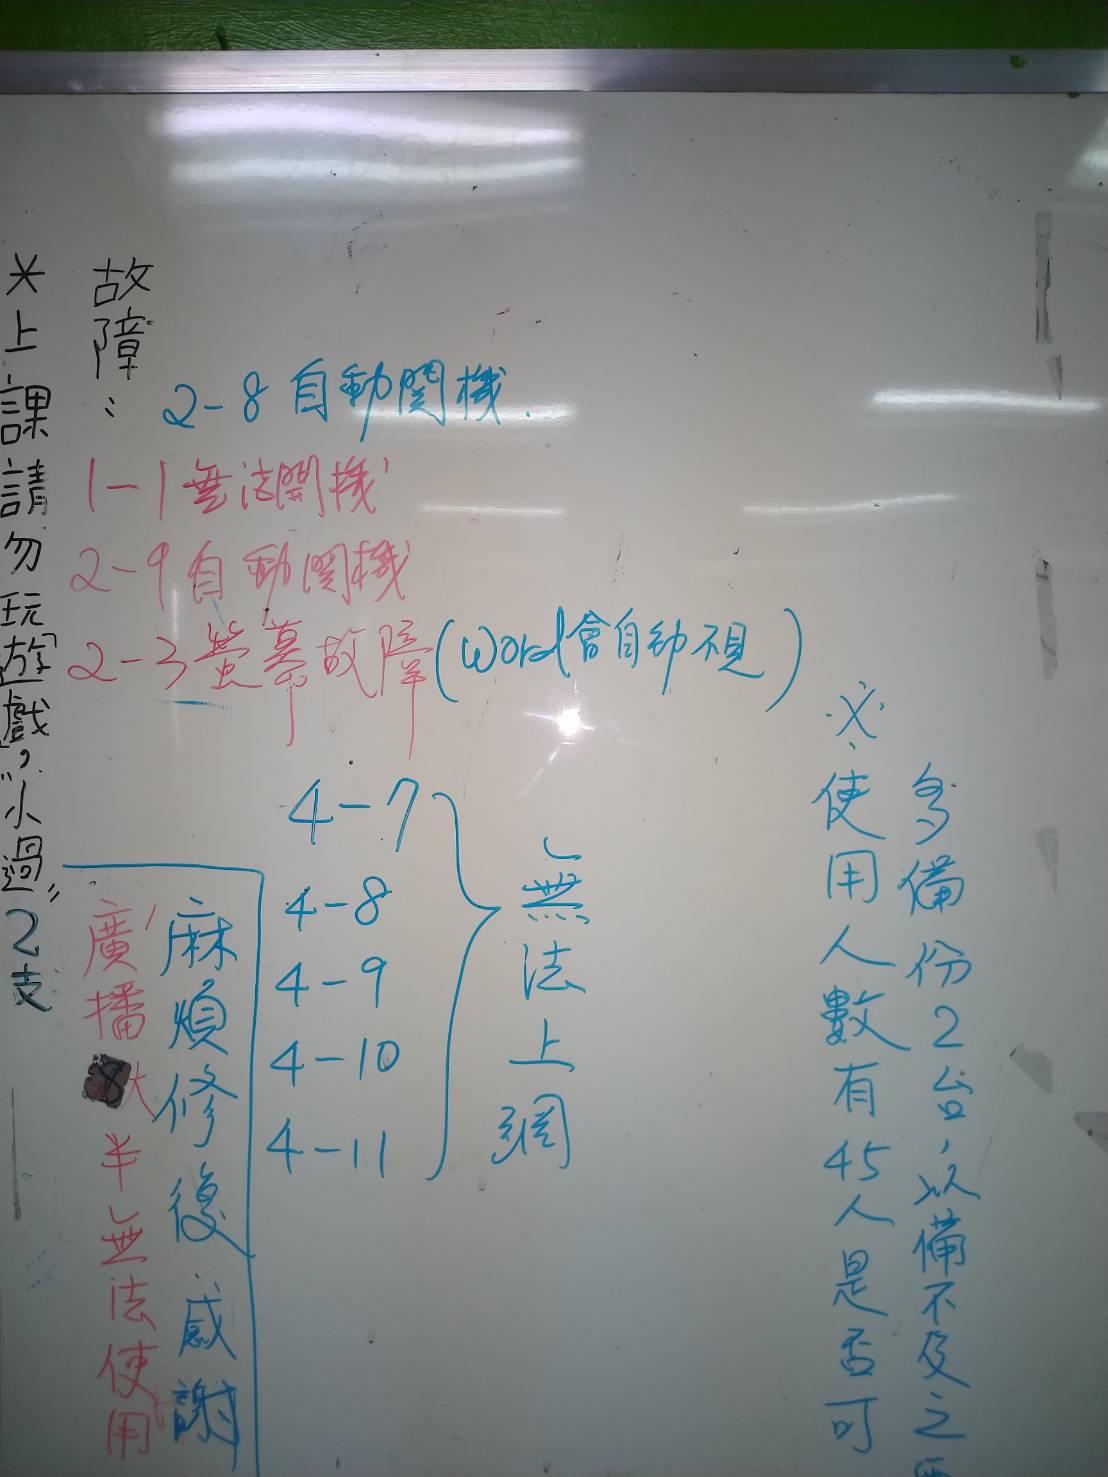 ※上課請勿玩遊戲，"小過"2支
故障：
2-8自動關機
1-1無法開機
2-9自動關機
2-3螢幕故障(Word會自動不見)
4-7
4-8
4-9
4-10
4-11
無法上網
麻煩修復感謝
廣播大半無法使用
※使用人數有45人是否可
多備份2台，以備不及之